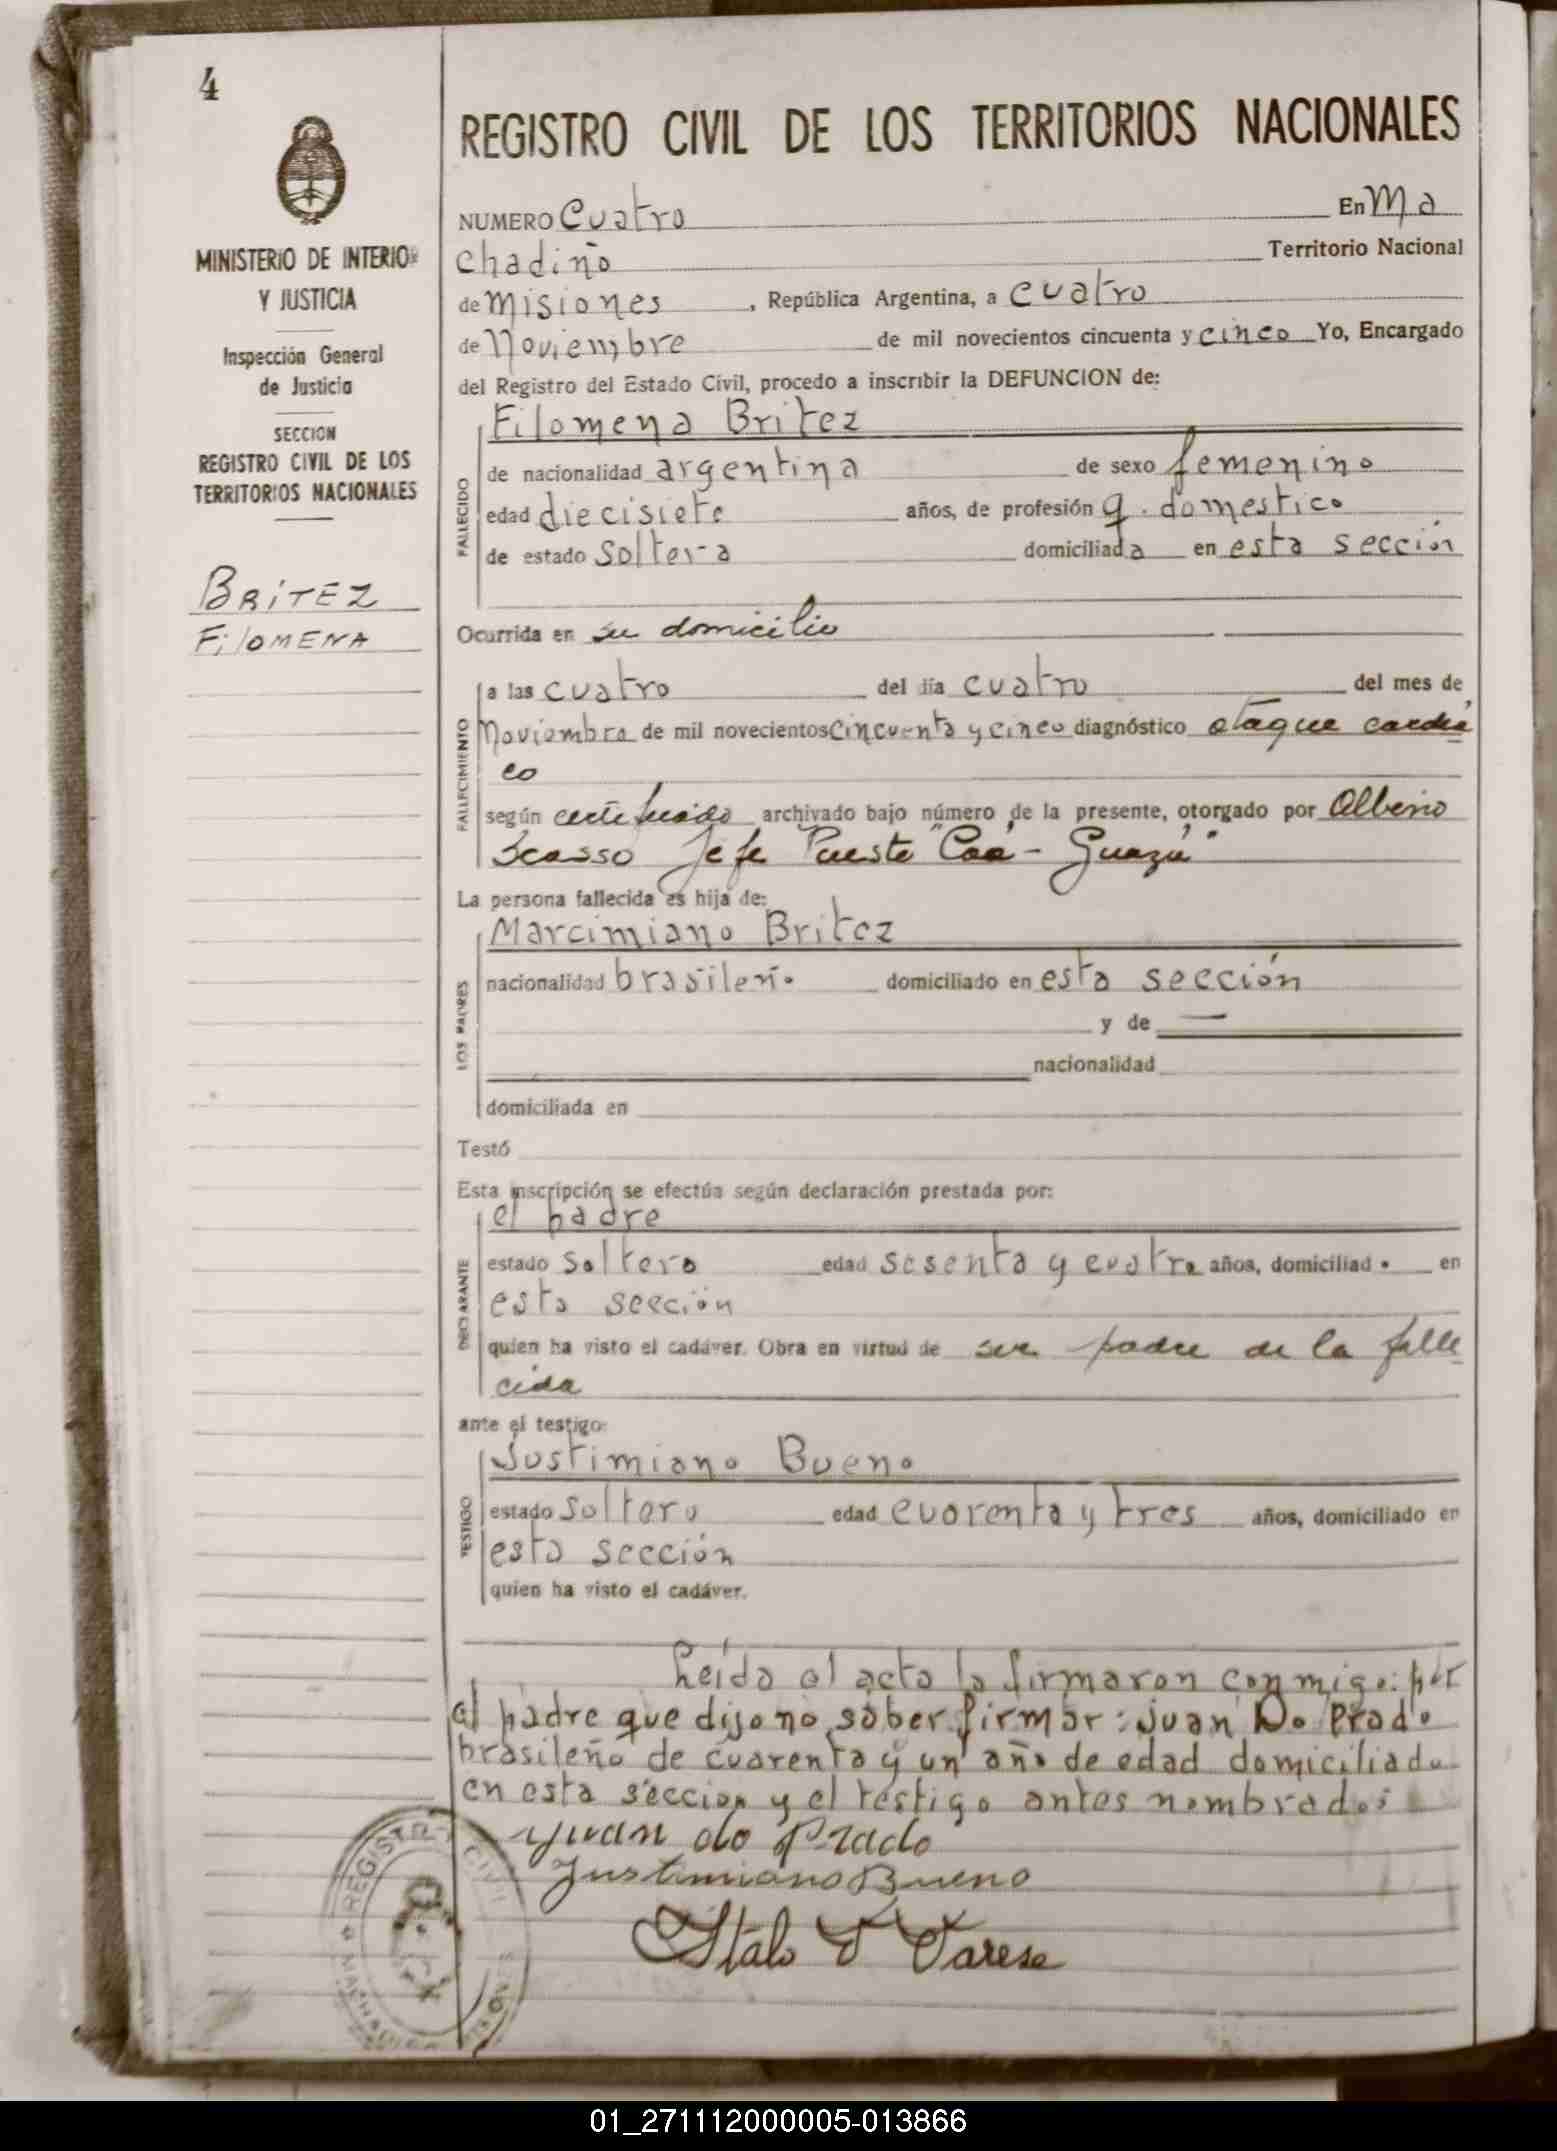 4
MINISTERIO DE INTERIOR
Y JUSTICIA
Inspección General
de Justicia
SECCION
REGISTRO CIVIL DE LOS
TERRITORIOS NACIONALES
BRITEZ
FILOMENA
REGISTRO CIVIL DE LOS TERRITORIOS NACIONALES
NUMERO Cuatro En Ma
chadiño Territorio Nacional
de Misiones, República Argentina, a cuatro
de Noviembre de mil novecientos cincuenta y cinco Yo, Encargado
del Registro del Estado Civil, procedo a inscribir la DEFUNCION de:
FALLECIDO
Filomena Britez
de nacionalidad argentina de sexo femenino
edad diecisiete años, de profesión q. domestico
de estado soltera domiciliada en esta sección
Ocurrida en su domicilio
FALLECIMIENTO
a las cuatro del día cuatro del mes de
Noviembre de mil novecientos cincuenta y cinco diagnóstico ataque cardia
co
según certificado archivado bajo número de la presente, otorgado por Albino
Scasso Jefe Puesto "Caá-Guazú"
La persona fallecida es hija de:
LOS PADRES
Marcimiano Britez
nacionalidad brasileño domiciliado en esta sección
y de —
nacionalidad
domiciliada en
Testó
Esta inscripción se efectúa según declaración prestada por:
DECLARANTE
el padre
estado soltero edad sesenta y cuatro años, domiciliado en
esta sección
quien ha visto el cadáver. Obra en virtud de ser padre de la falle
cida
ante el testigo:
TESTIGO
Justimiano Bueno
estado soltero edad cuarenta y tres años, domiciliado en
esta sección
quien ha visto el cadáver.
Leída el acta la firmaron conmigo: por
el padre que dijo no saber firmar: Juan Do Prado
brasileño de cuarenta y un año de edad domiciliado
en esta sección y el testigo antes nombrado:
Juan do Prado
Justimiano Bueno
Italo T Varese
REGISTRO CIVIL
01_271112000005-013866